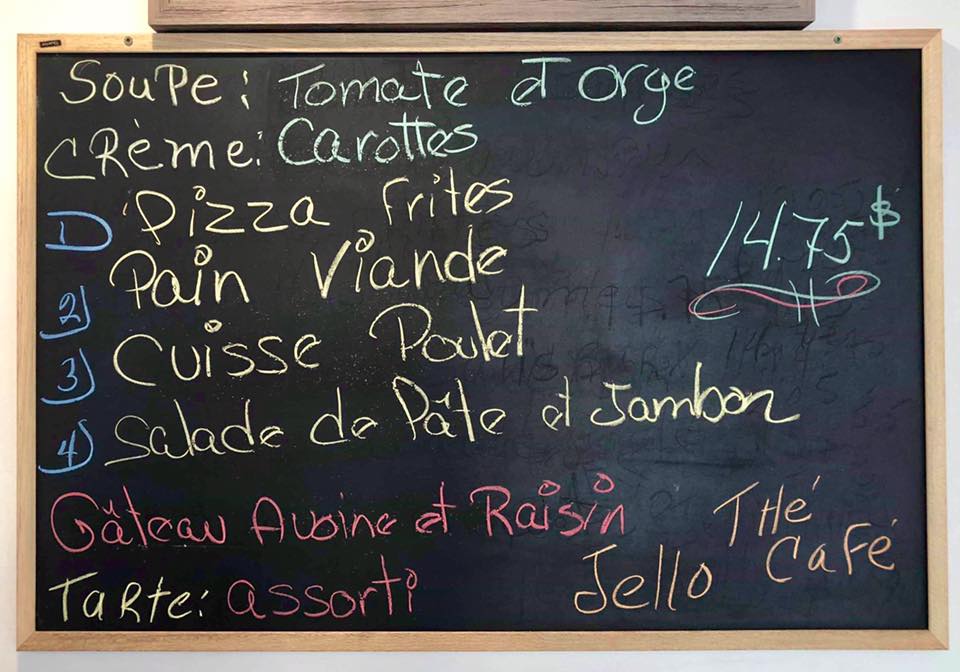 Soupe: Tomate et orge
Crème: Carottes
1) Pizza Frites
14.75$
2) Pain Viande
3) Cuisse Poulet
4) Salade de Pâte et Jambon
Gâteau Avoine et Raisin
Thé
Café
Jello
Tarte: assorti